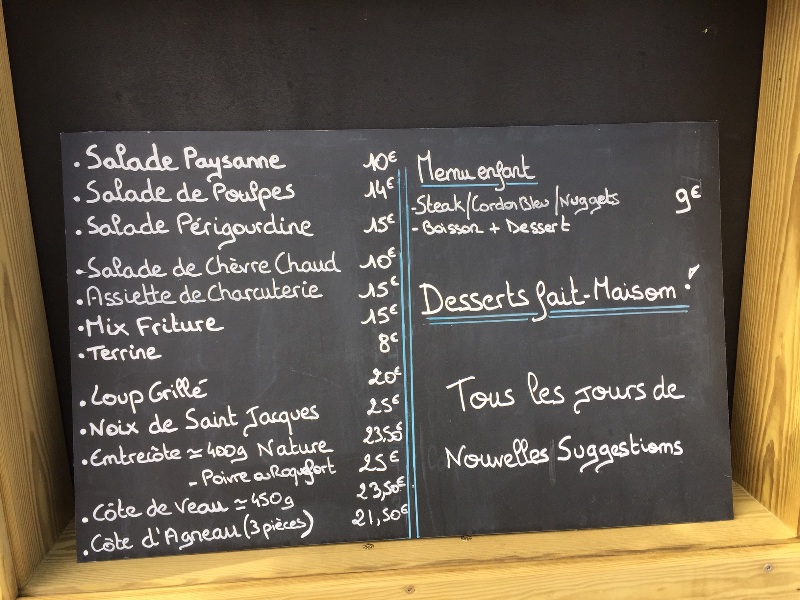 • Salade Paysanne 10€
• Salade de Poulpes 14€
• Salade Périgourdine 15€
• Salade de Chèvre Chaud 10€
• Assiette de Charcuterie 15€
• Mix Friture 15€
• Terrine 8€
• Loup Grillé 20€
• Noix de Saint Jacques 25€
• Entrecôte ≃ 400g Nature 23,50€
- Poivre ou Roquefort 25€
• Côte de Veau ≃ 450g 23,50€
• Côte d'Agneau (3 pièces) 21,50€
Menu enfant
- Steak/Cordon Bleu/Nuggets 9€
- Boisson + Dessert
Desserts fait-Maison !
Tous les jours de
Nouvelles Suggestions